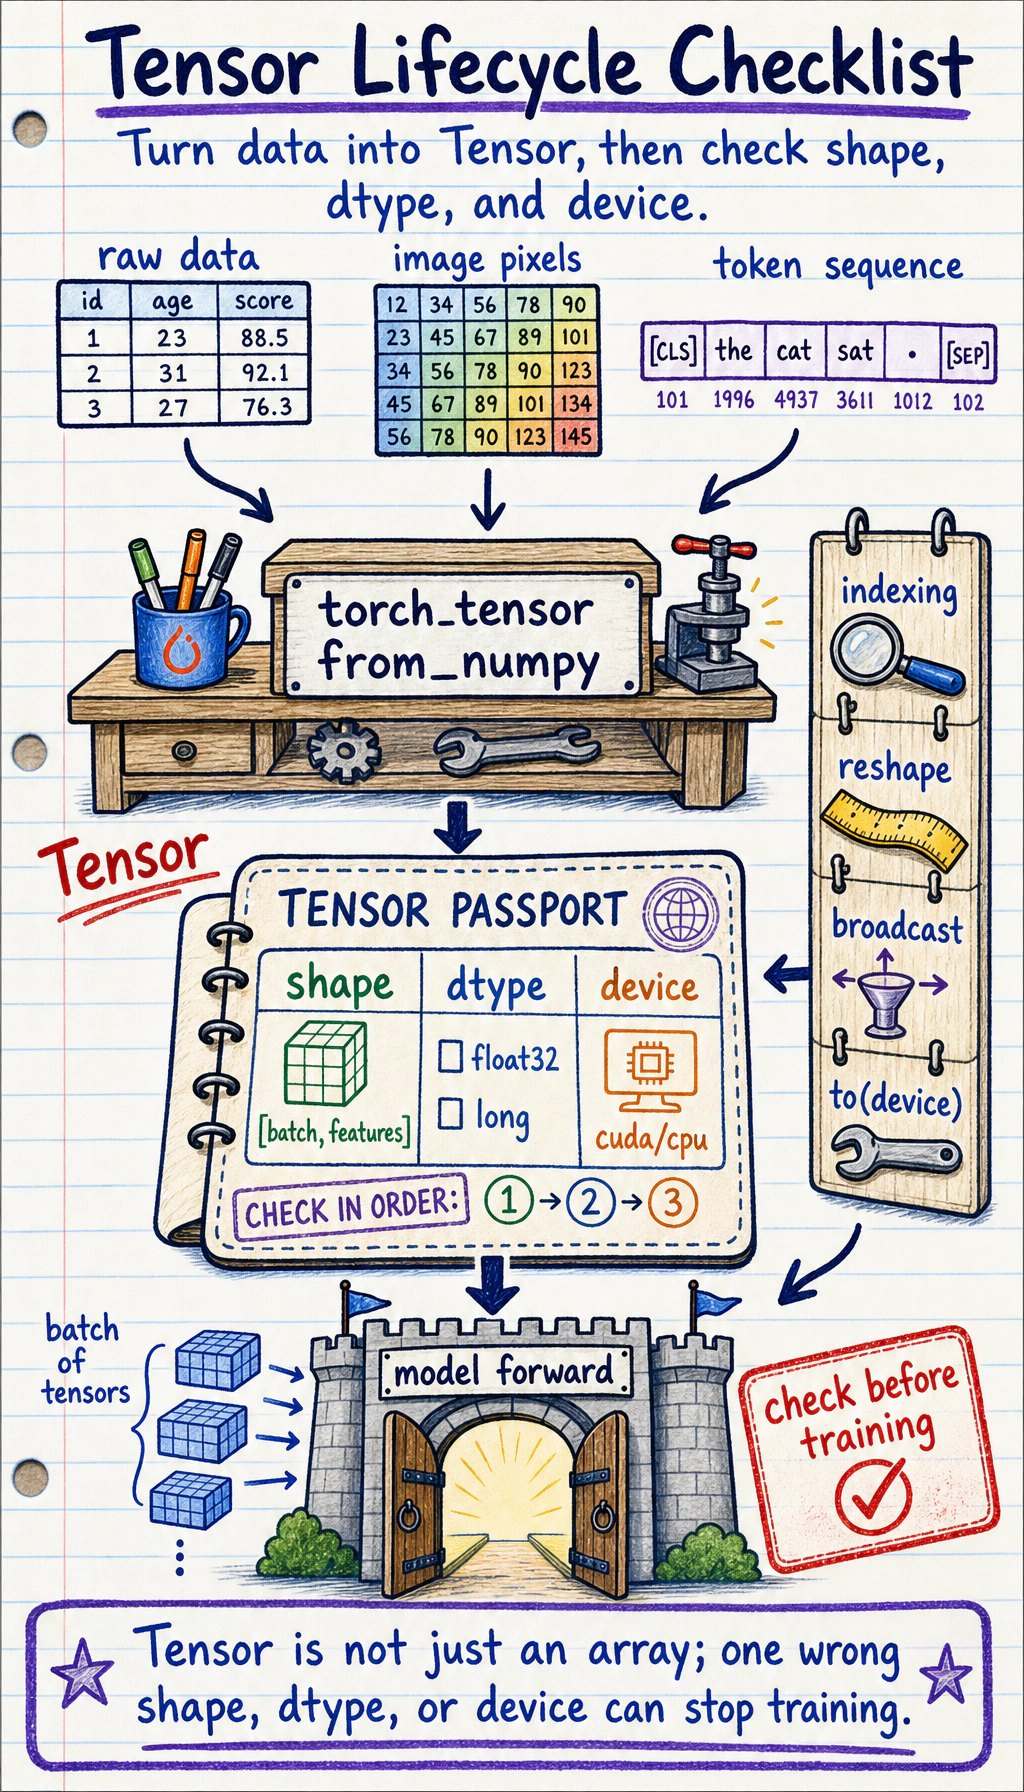 Tensor Lifecycle Checklist
Turn data into Tensor, then check shape,
dtype, and device.
raw data
id age score
1 23 88.5
2 31 92.1
3 27 76.3
image pixels
12 34 56 78 90
23 45 67 89 101
34 56 78 90 123
45 67 89 101 134
56 78 90 123 145
token sequence
[CLS] the cat sat . [SEP]
101 1996 4937 3611 1012 102
torch_tensor
from_numpy
indexing
reshape
broadcast
to(device)
Tensor
TENSOR PASSPORT
shape dtype device
[batch, features]
float32
long
cuda/cpu
CHECK IN ORDER: 1 → 2 → 3
batch
of
tensors
model forward
check before
training
Tensor is not just an array; one wrong
shape, dtype, or device can stop training.